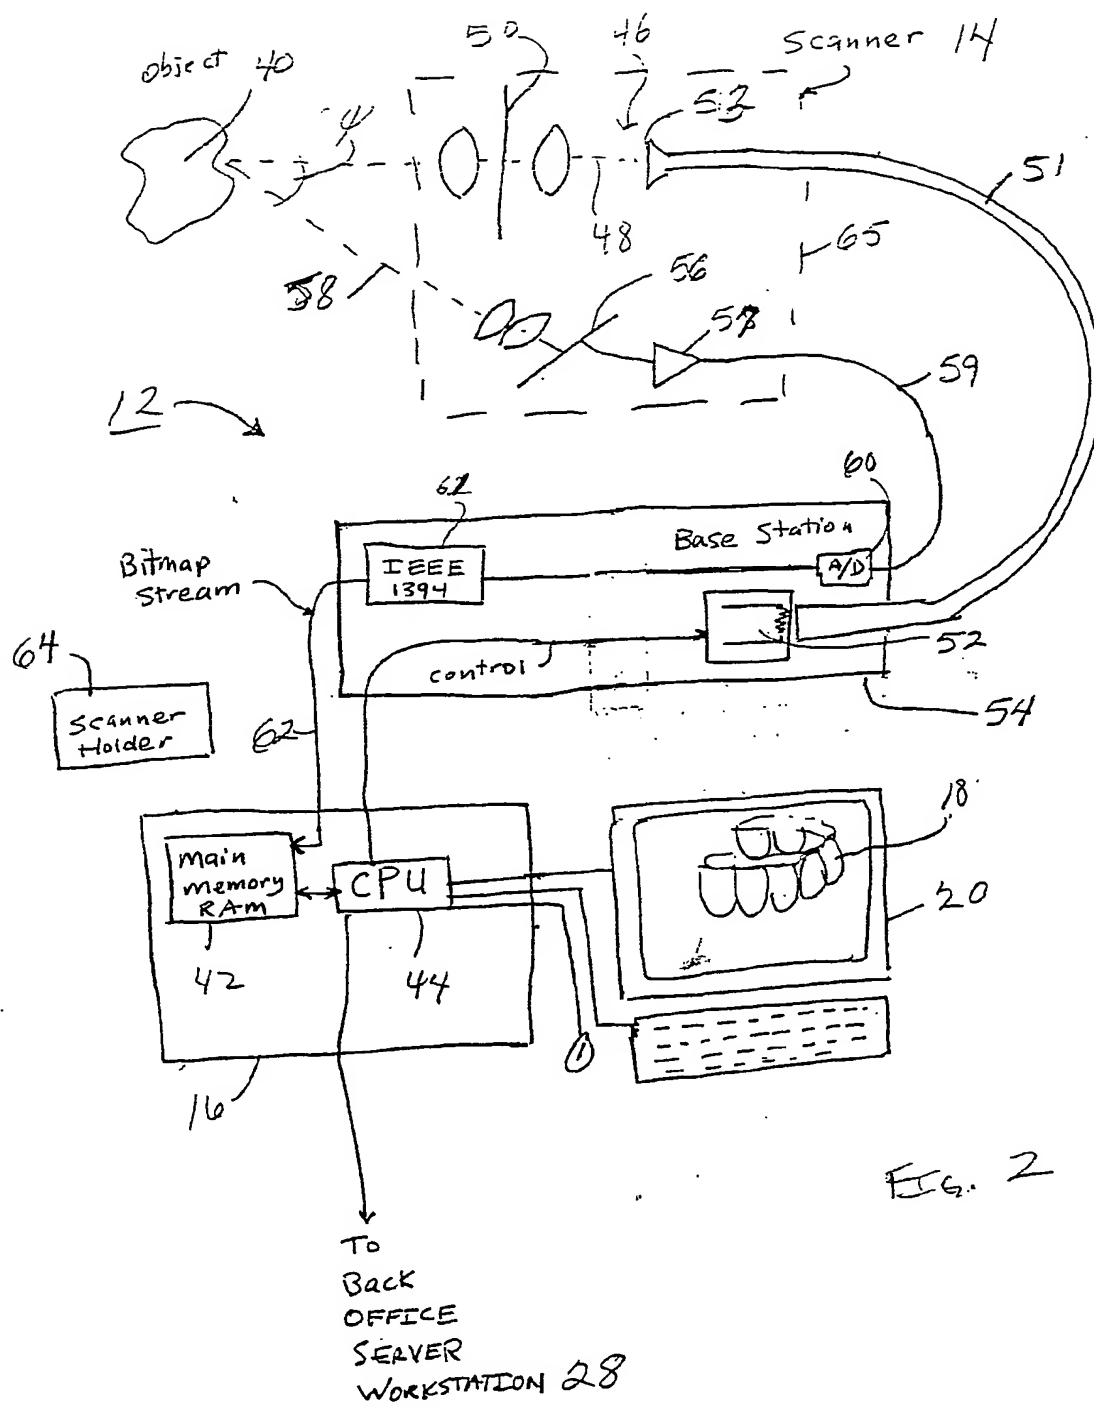 50
46
Scanner 14
object 40
ψ
53
51
48
65
56
58
57
59
12
60
61
Base Station
Bitmap
Stream
IEEE
1394
A/D
64
52
control
54
Scanner
Holder
62
18
Main
Memory
RAM
CPU
20
42
44
16
FIG. 2
To
Back
OFFICE
SERVER
WORKSTATION 28